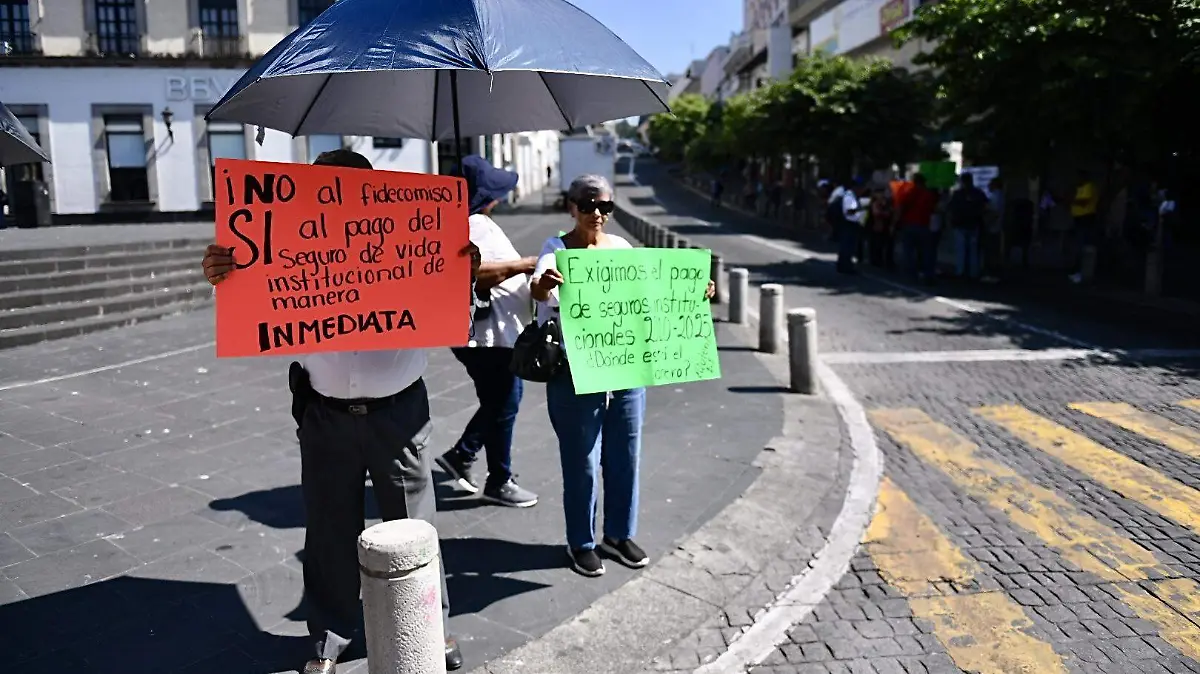 BBV
¡NO al fideicomiso!
SI al pago del
seguro de vida
institucional de
manera
INMEDIATA
Exigimos el pago
de seguros institu
cionales 2020-2025
¿Dónde está el
dinero?